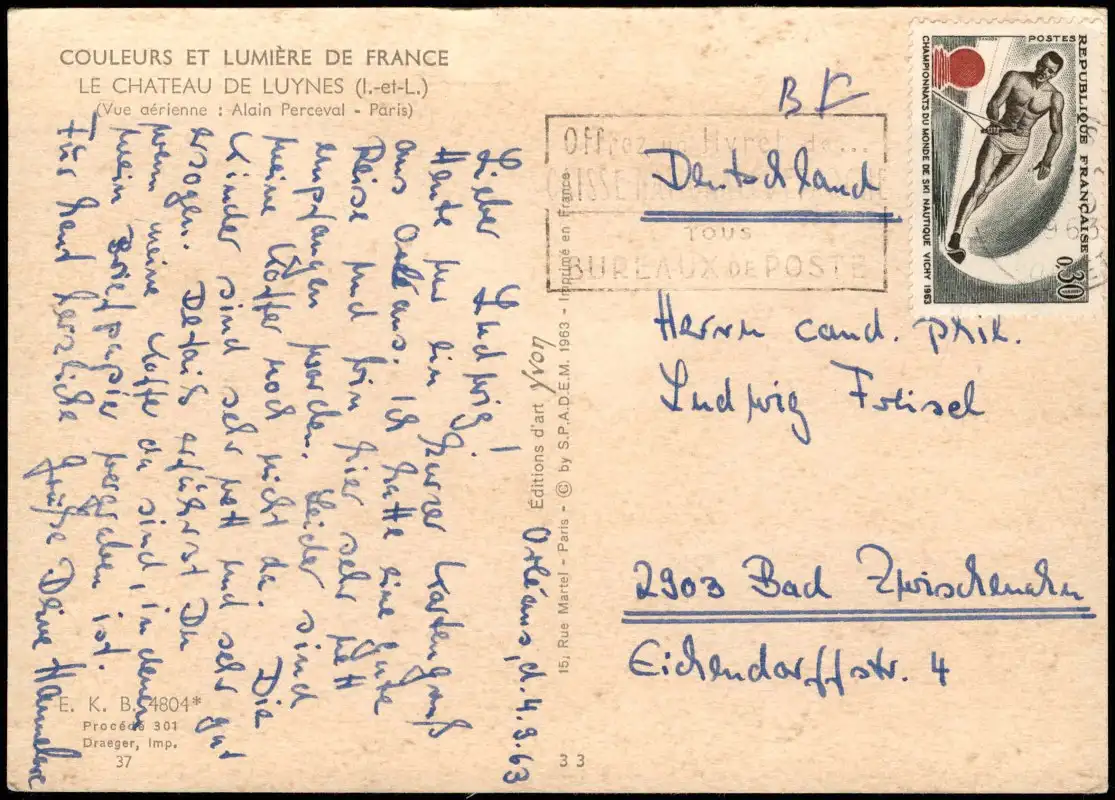 COULEURS ET LUMIÈRE DE FRANCE
LE CHATEAU DE LUYNES (I.-et-L.)
(Vue aérienne : Alain Perceval - Paris)
Orléans, d. 4.9.63
Lieber Ludwig!
Heute nur ein kurzer Kartengruß
aus Orléans. Ich hatte eine gute
Reise und bin hier sehr nett
empfangen worden. Leider sind
meine Koffer noch nicht da. Die
Kinder sind sehr nett und sehr gut
erzogen. Details erfährst Du
wenn meine Koffer da sind, in denen
mein Briefpapier vergraben ist.
Für heut herzliche Grüße Deine Hannelore
E. K. B. 4804*
Procédé 301
Draeger, Imp.
37
Éditions d'art Yvon
15, Rue Martel - Paris - © by S.P.A.D.E.M. 1963 - Imprimé en France
33
B F
Offrez un livret de...
CAISSE NATIONALE D'EPARGNE
TOUS
BUREAUX DE POSTE
Deutschland
Herrn cand. phil.
Ludwig Freisel
2903 Bad Zwischenahn
Eichendorffstr. 4
POSTES
REPUBLIQUE FRANÇAISE
CHAMPIONNATS DU MONDE DE SKI NAUTIQUE VICHY 1963
0,30
1963